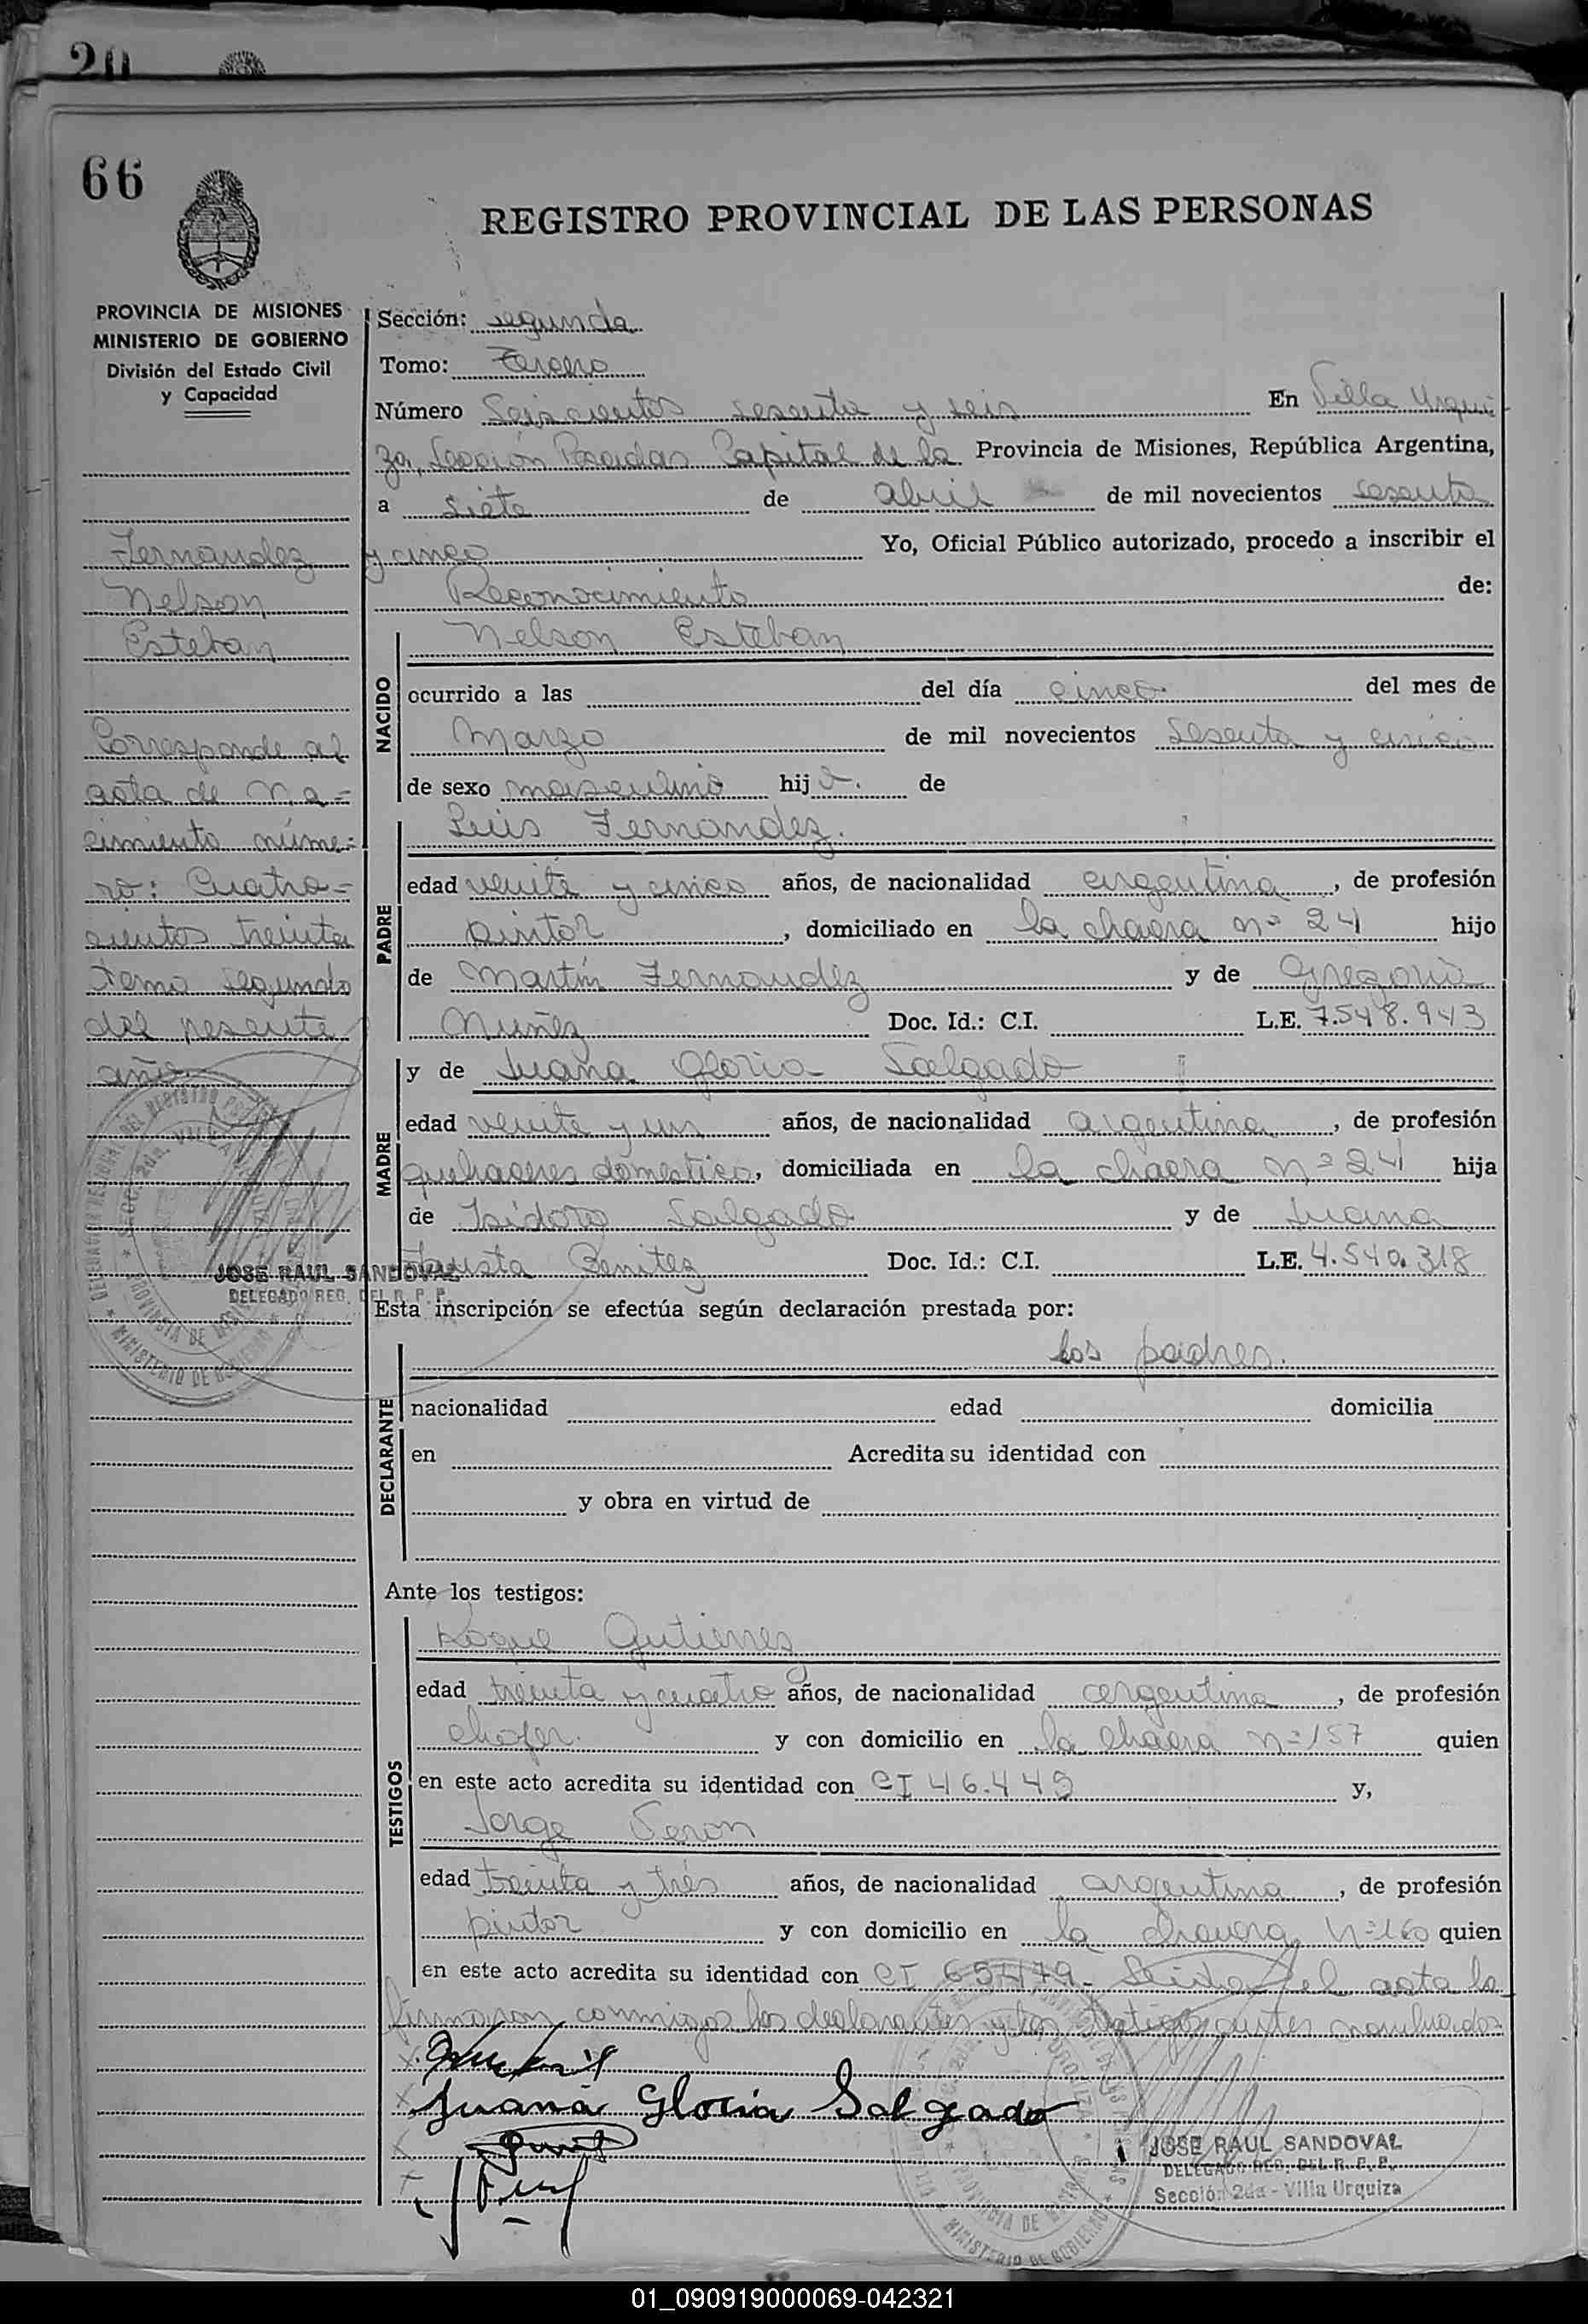 20
66
REGISTRO PROVINCIAL DE LAS PERSONAS
PROVINCIA DE MISIONES
MINISTERIO DE GOBIERNO
División del Estado Civil
y Capacidad
Fernandez
Nelson
Esteban
Corresponde al
acta de na=
cimiento núme=
ro: Cuatro=
cientos treinta
tomo segundo
del presente
año
JOSE RAUL SANDOVAL
DELEGADO REG. DEL R. P. P.
Sección: segunda
Tomo: Tercero
Número Seiscientos sesenta y seis En Villa Urqui
za, Sección Posadas Capital de la Provincia de Misiones, República Argentina,
a siete de abril de mil novecientos sesenta
y cinco Yo, Oficial Público autorizado, procedo a inscribir el
Reconocimiento de:
NACIDO
Nelson Esteban
ocurrido a las del día cinco del mes de
Marzo de mil novecientos sesenta y cinco
de sexo masculino hijo. de
PADRE
Luis Fernandez.
edad veinte y cinco años, de nacionalidad argentina, de profesión
pintor, domiciliado en la chacra nº 24 hijo
de Martín Fernandez y de Gregoria
Nuñez Doc. Id.: C.I. L.E. 7.548.943
MADRE
y de Juana Gloria Salgado
edad veinte y un años, de nacionalidad argentina, de profesión
quehaceres domestico, domiciliada en la chacra nº 24 hija
de Isidoro Salgado y de Juana
Fausta Benitez Doc. Id.: C.I. L.E. 4.540.318
Esta inscripción se efectúa según declaración prestada por:
DECLARANTE
los padres.
nacionalidad edad domicilia
en Acredita su identidad con
y obra en virtud de
Ante los testigos:
TESTIGOS
Roque Gutierrez
edad treinta y cuatro años, de nacionalidad argentina, de profesión
chofer. y con domicilio en la chacra nº 157 quien
en este acto acredita su identidad con CI 46.449 y,
Jorge
edad treinta y tres años, de nacionalidad argentina, de profesión
pintor y con domicilio en la chacra nº 160 quien
en este acto acredita su identidad con CI 65479- Leida el acta la
firmaron conmigo los declarantes y los testigos antes nombrados
Juana Gloria Salgado
JOSE RAUL SANDOVAL
DELEGADO REG. DEL R. P. P.
Sección 2da - Villa Urquiza
01_090919000069-042321